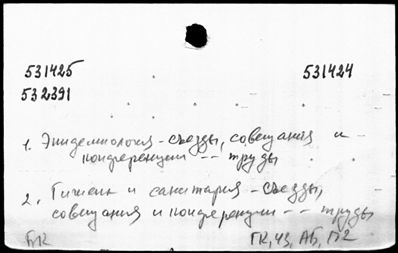 531425 531424
532391
1. Эпидемиология - съезды, совещания и
конференции -- труды
2. Гигиена и санитария - съезды,
совещания и конференции -- труды
БК ГК, ЧЗ, АБ, П2